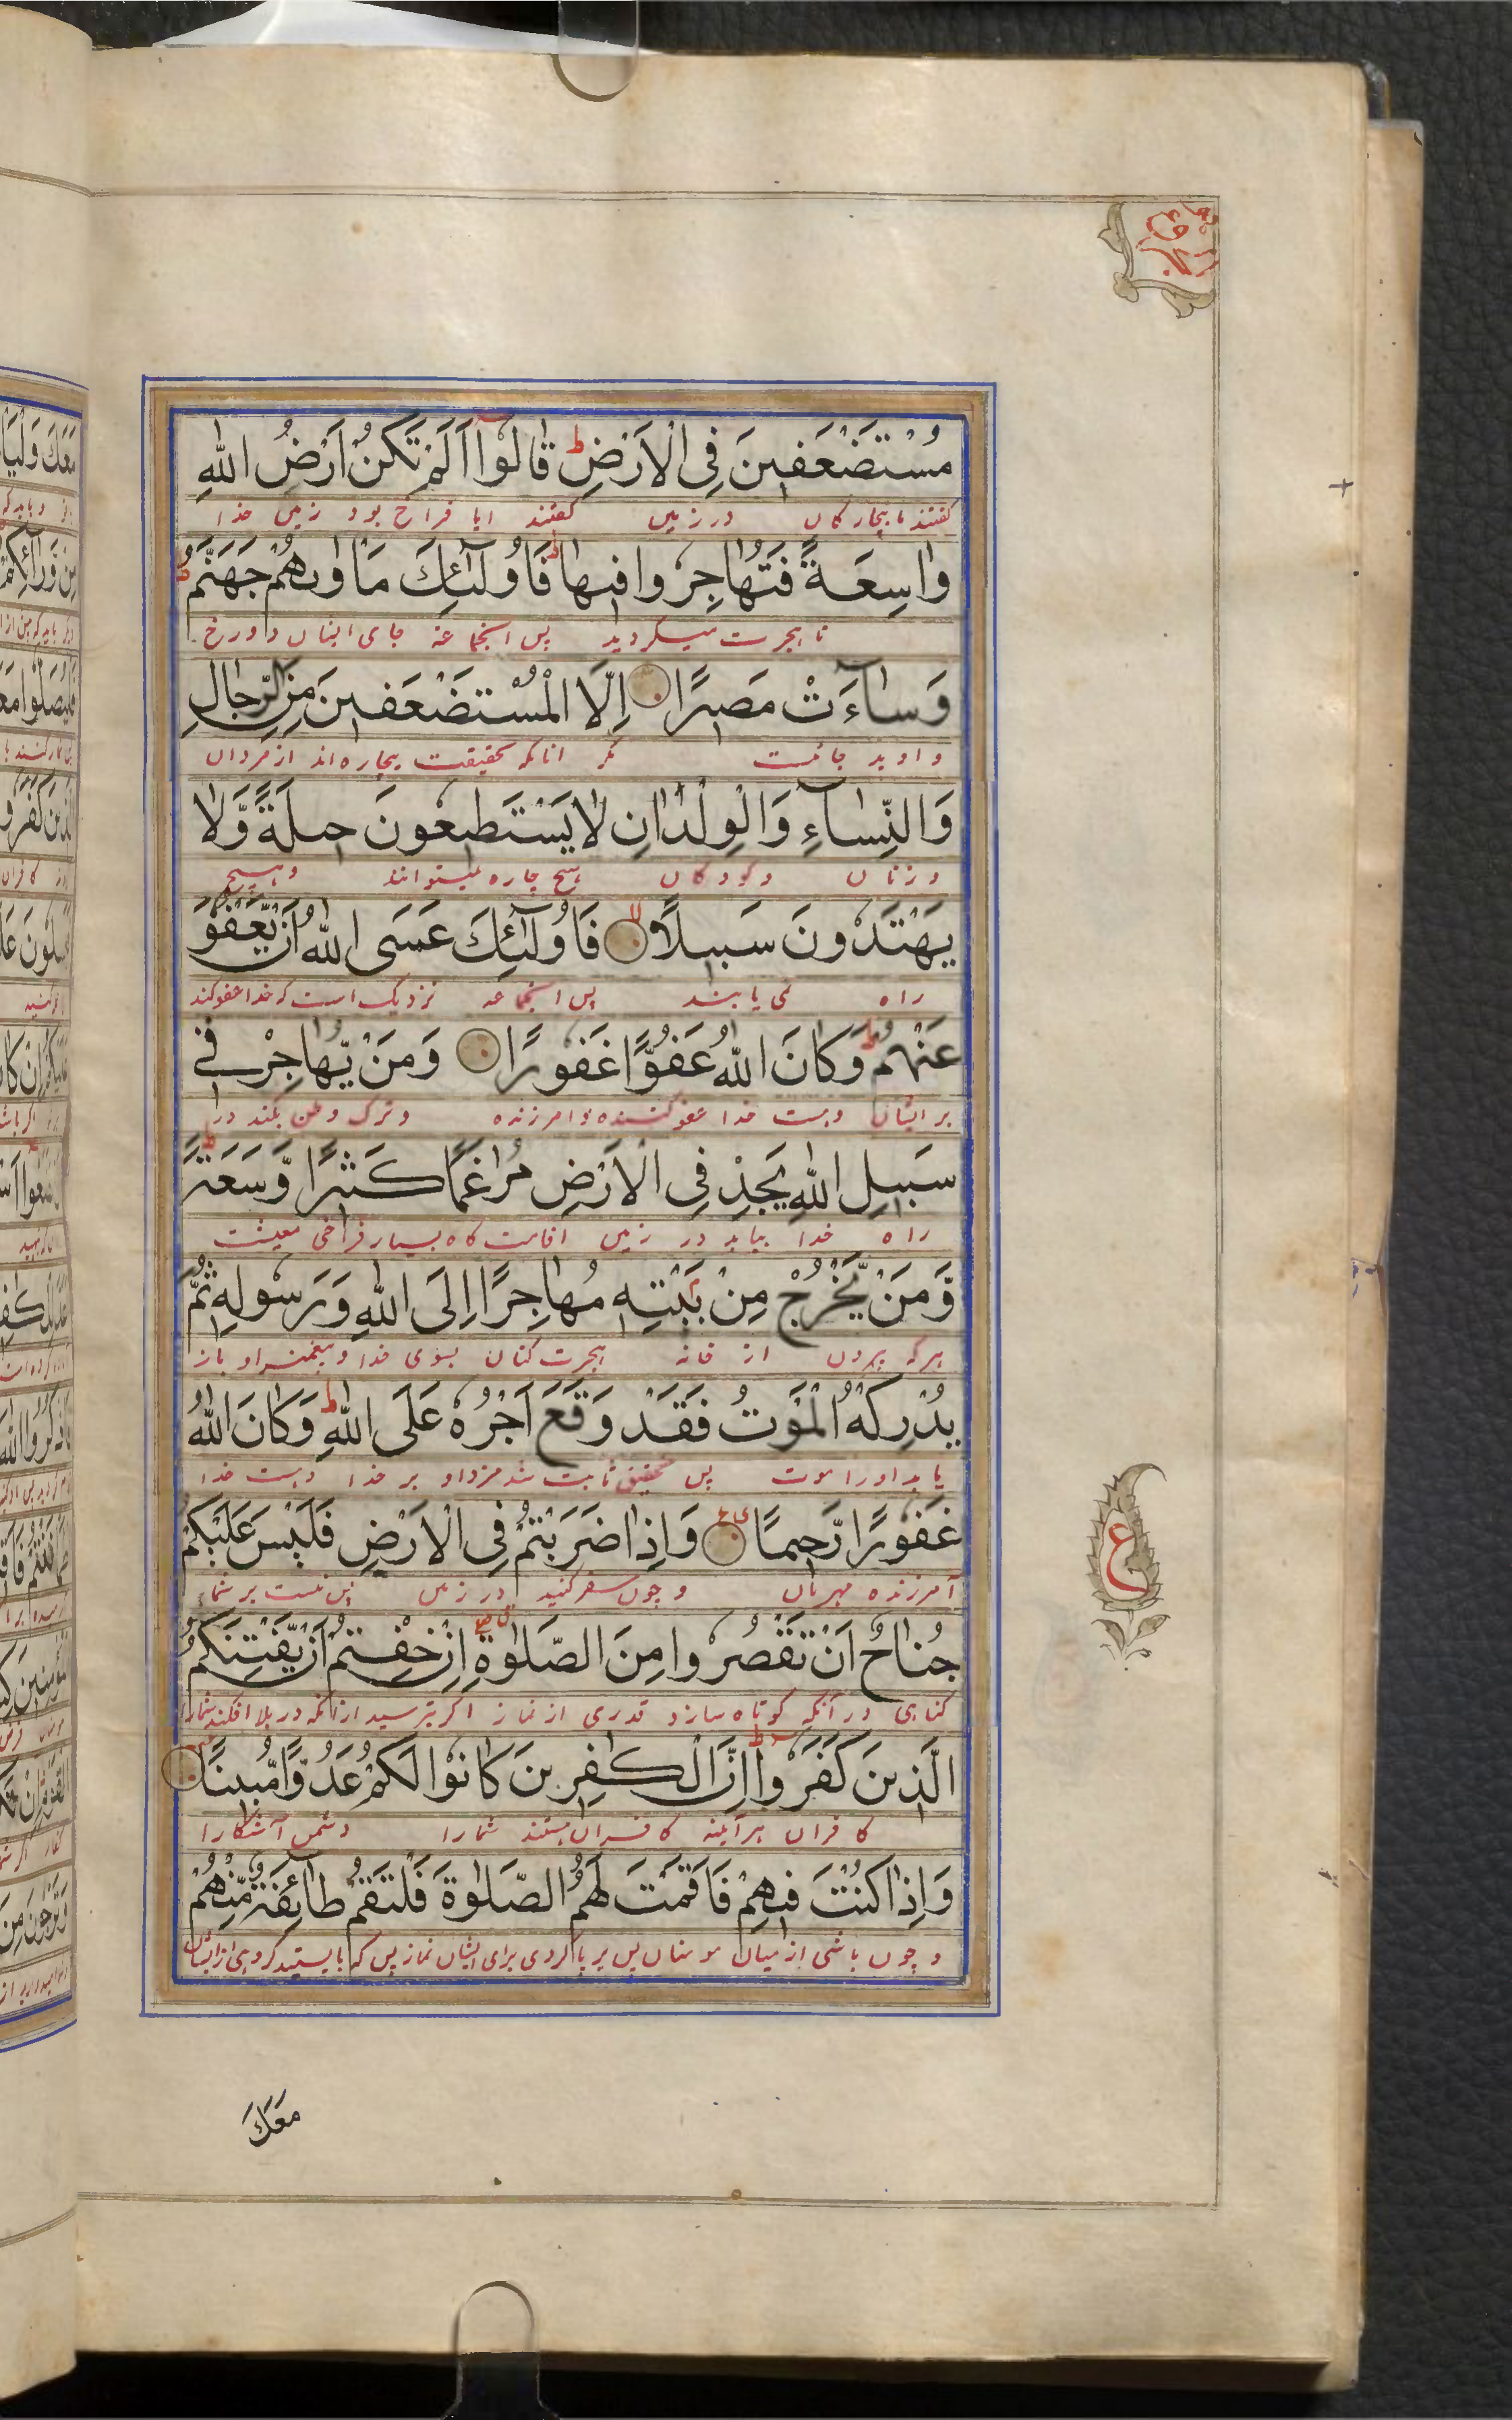 مُسْتَضْعَفِينَ فِي الْاَرْضِ ط قَالُوا اَلَمْ تَكُنْ اَرْضُ اللّٰهِ
گفتند ما بیچارگان در زمین گفتند ایا فراخ بود زمین خدا
وَاسِعَةً فَتُهَاجِرُوا فِيهَا ط فَاُولٰٓئِكَ مَاْوٰىهُمْ جَهَنَّمُ ط
تا هجرت میکردید پس انجماعه جای ایشان دوزخ
وَسَآءَتْ مَصِيرًا اِلَّا الْمُسْتَضْعَفِينَ مِنَ الرِّجَالِ
و او بد جائست مگر انانکه بحقیقت بیچاره اند از مردان
وَالنِّسَآءِ وَالْوِلْدَانِ لَا يَسْتَطِيعُونَ حِيلَةً وَّلَا
و زنان و کودکان هیچ چاره نمیتوانند و هیچ
يَهْتَدُونَ سَبِيلًا لا فَاُولٰٓئِكَ عَسَى اللّٰهُ اَنْ يَّعْفُوَ
راه نمی یابند پس انجماعه نزدیک است که خدا عفو کند
عَنْهُمْ ط وَكَانَ اللّٰهُ عَفُوًّا غَفُورًا وَمَنْ يُّهَاجِرْ فِي
بر ایشان و هست خدا عفو کننده و امرزنده و ترک وطن بکند در
سَبِيلِ اللّٰهِ يَجِدْ فِي الْاَرْضِ مُرٰغَمًا كَثِيرًا وَّسَعَةً ط
راه خدا بیابد در زمین اقامت گاه بسیار فراخی معیشت
وَّمَنْ يَّخْرُجْ مِنْ بَيْتِهِ مُهَاجِرًا اِلَى اللّٰهِ وَرَسُولِهِ ثُمَّ
هرکه بیرون از خانه هجرت کنان بسوی خدا و پیغمبر او باز
يُدْرِكْهُ الْمَوْتُ فَقَدْ وَقَعَ اَجْرُهُ عَلَى اللّٰهِ ط وَكَانَ اللّٰهُ
یابد اورا موت پس تحقیق ثابت شد مزد او بر خدا و هست خدا
غَفُورًا رَّحِيمًا ع وَاِذَا ضَرَبْتُمْ فِي الْاَرْضِ فَلَيْسَ عَلَيْكُمْ
آمرزنده مهربان و چون سفر کنید در زمین پس نیست بر شما
جُنَاحٌ اَنْ تَقْصُرُوا مِنَ الصَّلٰوةِ اِنْ خِفْتُمْ اَنْ يَّفْتِنَكُمُ
گناهی در آنکه کوتاه سازد قدری از نماز اگر بترسید از انکه در بلا افکند شمارا
الَّذِينَ كَفَرُوا ط اِنَّ الْكٰفِرِينَ كَانُوا لَكُمْ عَدُوًّا مُّبِينًا
کافران هرآینه کافران هستند شمارا دشمن آشکارا
وَاِذَا كُنْتَ فِيهِمْ فَاَقَمْتَ لَهُمُ الصَّلٰوةَ فَلْتَقُمْ طَآئِفَةٌ مِّنْهُمْ
و چون باشی از میان مومنان پس برپا کردی برای ایشان نماز پس که بایستند گروهی از ایشان
ع
مَعَكَ